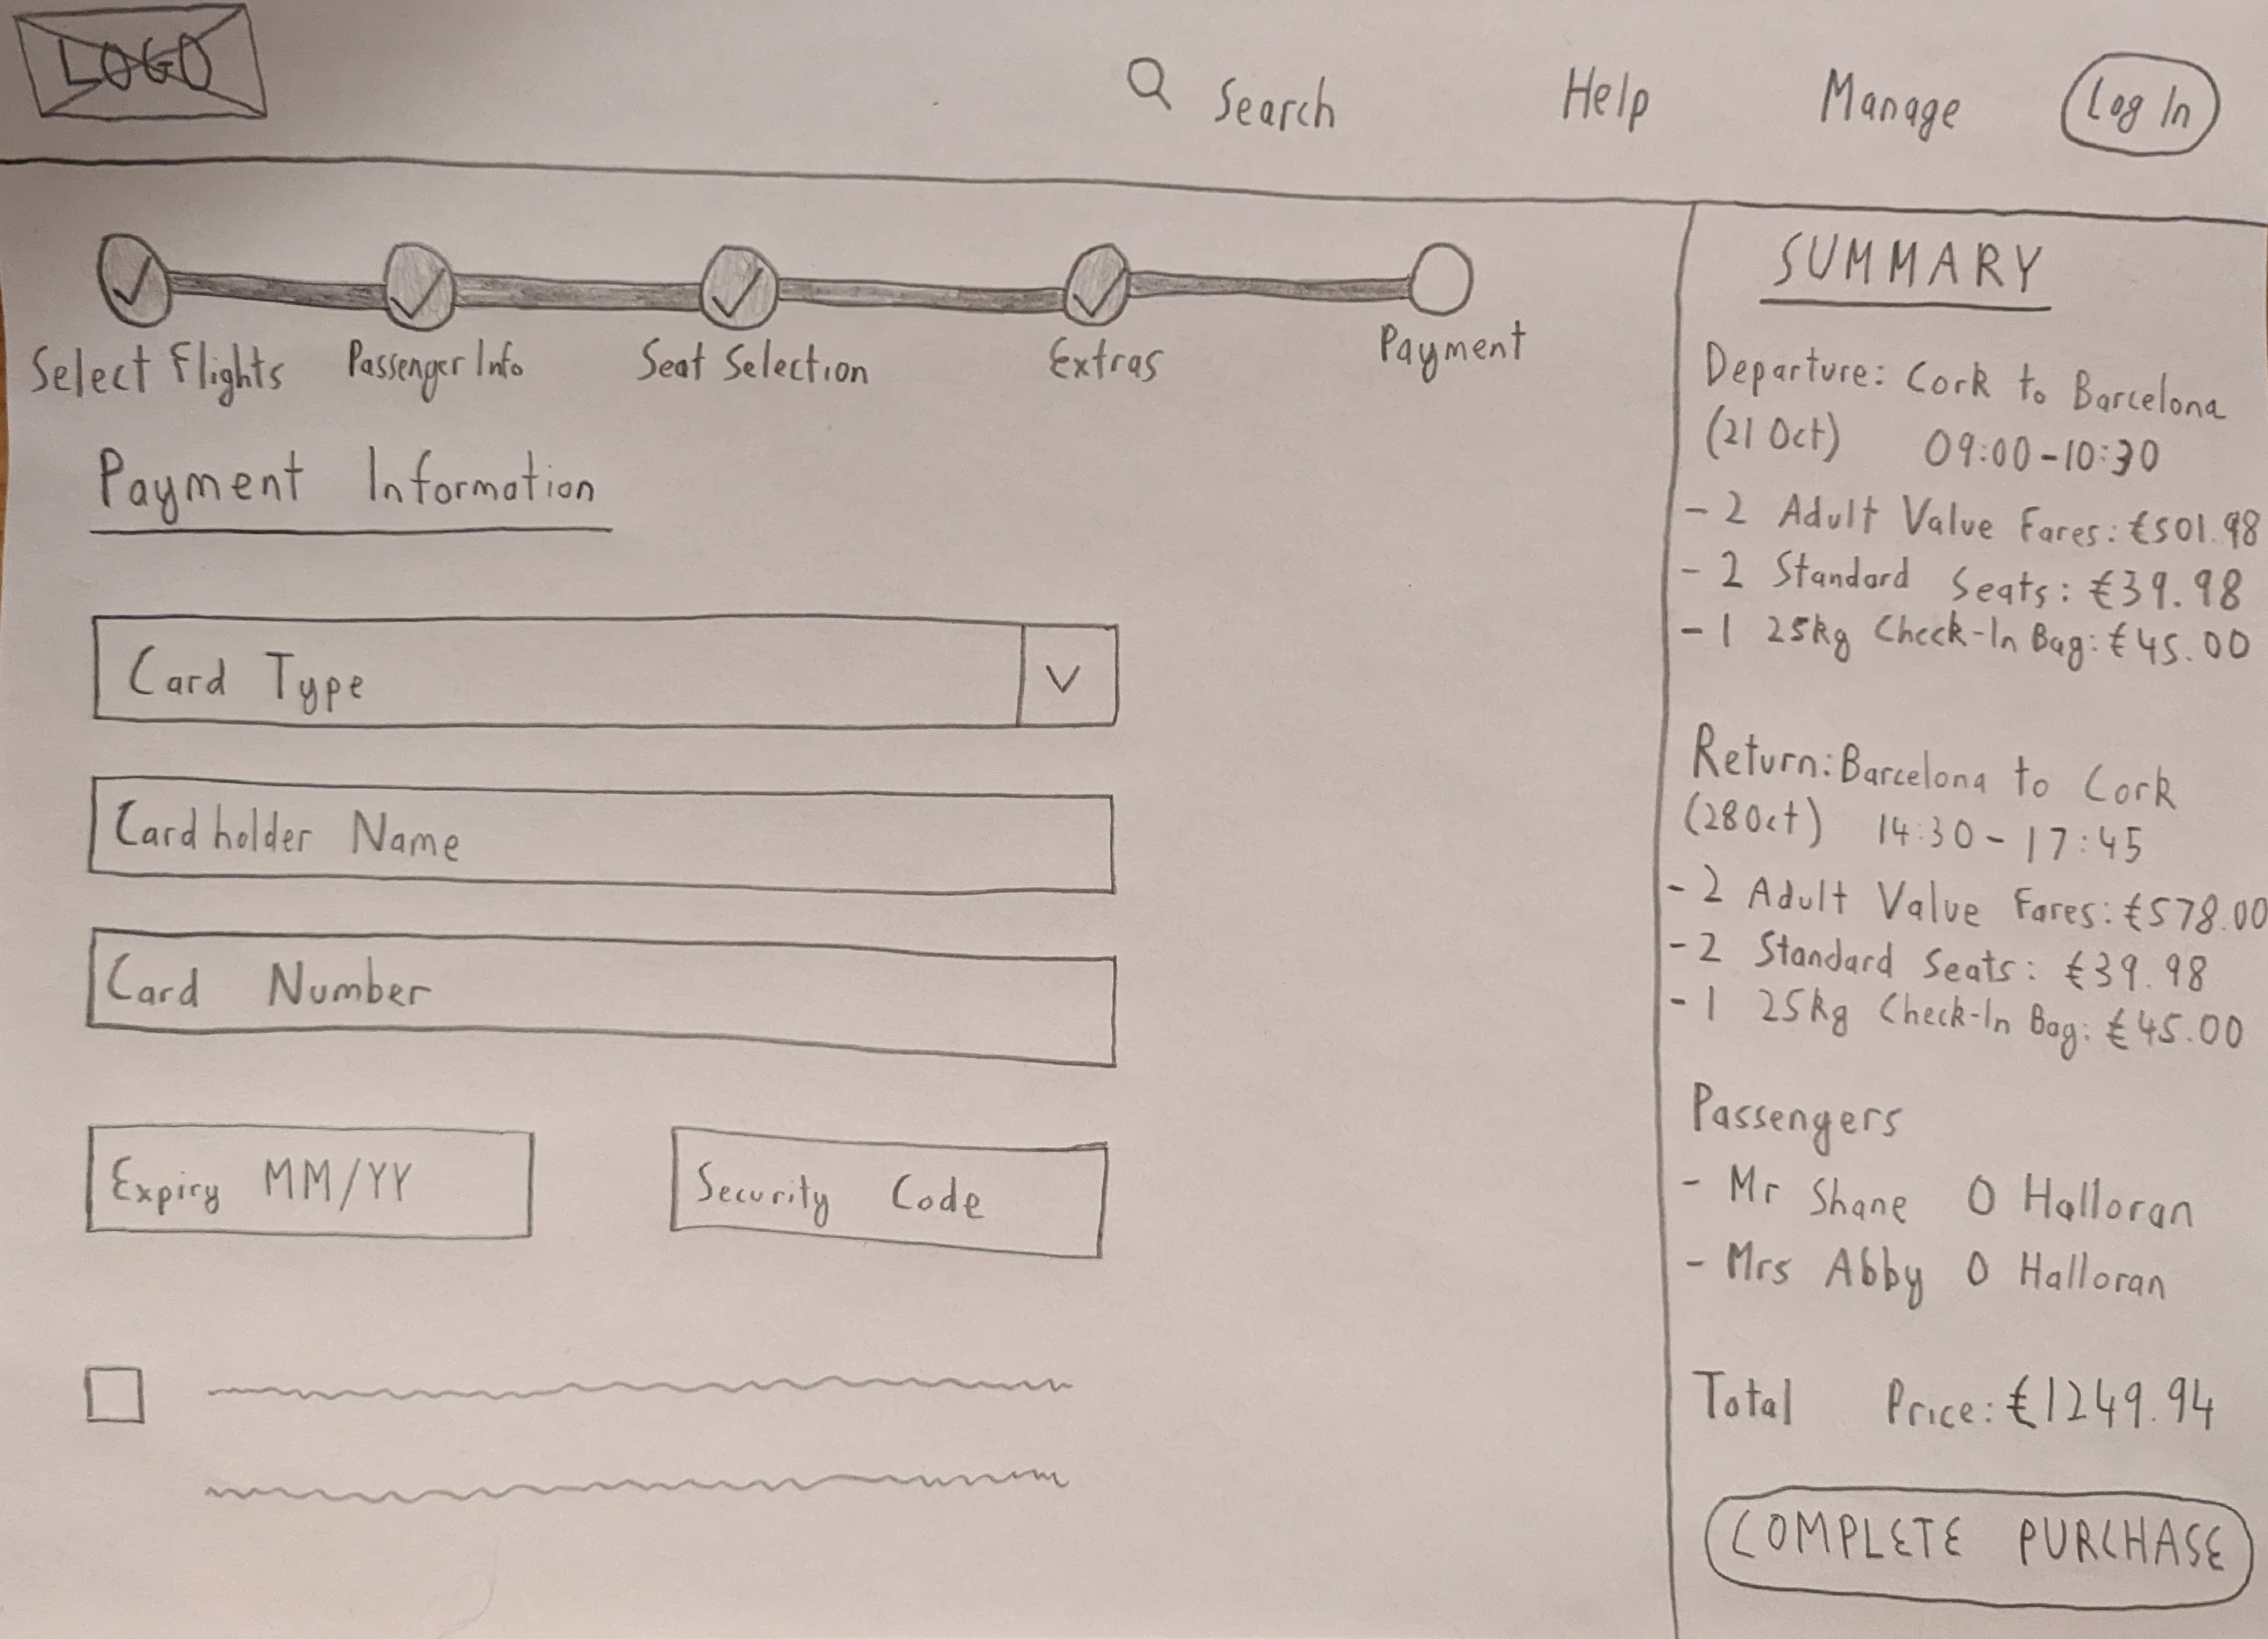 LOGO
Search Help Manage Log In
Select Flights Passenger Info Seat Selection Extras Payment
Payment Information
Card Type
Cardholder Name
Card Number
Expiry MM/YY Security Code
SUMMARY
Departure: Cork to Barcelona
(21 Oct) 09:00-10:30
- 2 Adult Value Fares: €501.98
- 2 Standard Seats: €39.98
- 1 25kg Check-In Bag: €45.00
Return: Barcelona to Cork
(28 Oct) 14:30-17:45
- 2 Adult Value Fares: €578.00
- 2 Standard Seats: €39.98
- 1 25kg Check-In Bag: €45.00
Passengers
- Mr Shane O Halloran
- Mrs Abby O Halloran
Total Price: €1249.94
COMPLETE PURCHASE